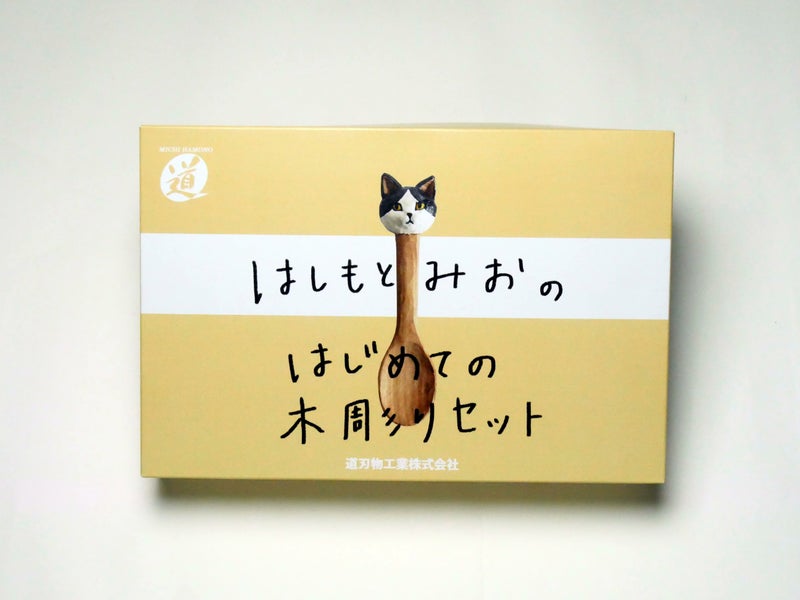 MICHI HAMONO
道
はしもとみおの
はじめての
木彫りセット
道刃物工業株式会社